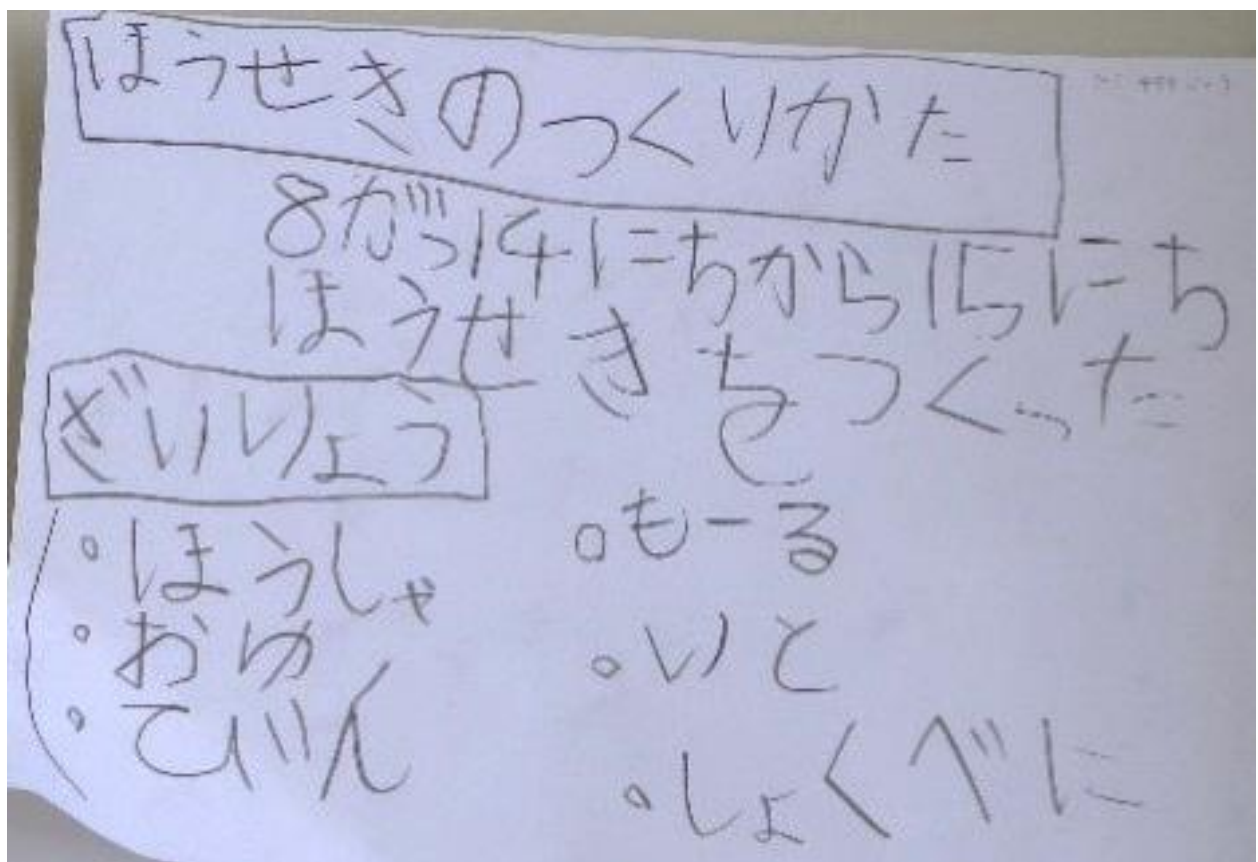 ほうせきのつくりかた
8がつ14にちから15にち
ほうせきをつくった
ざいりょう
・ほうしゃ
・おゆ
・てびん
・もーる
・いと
・しょくべに